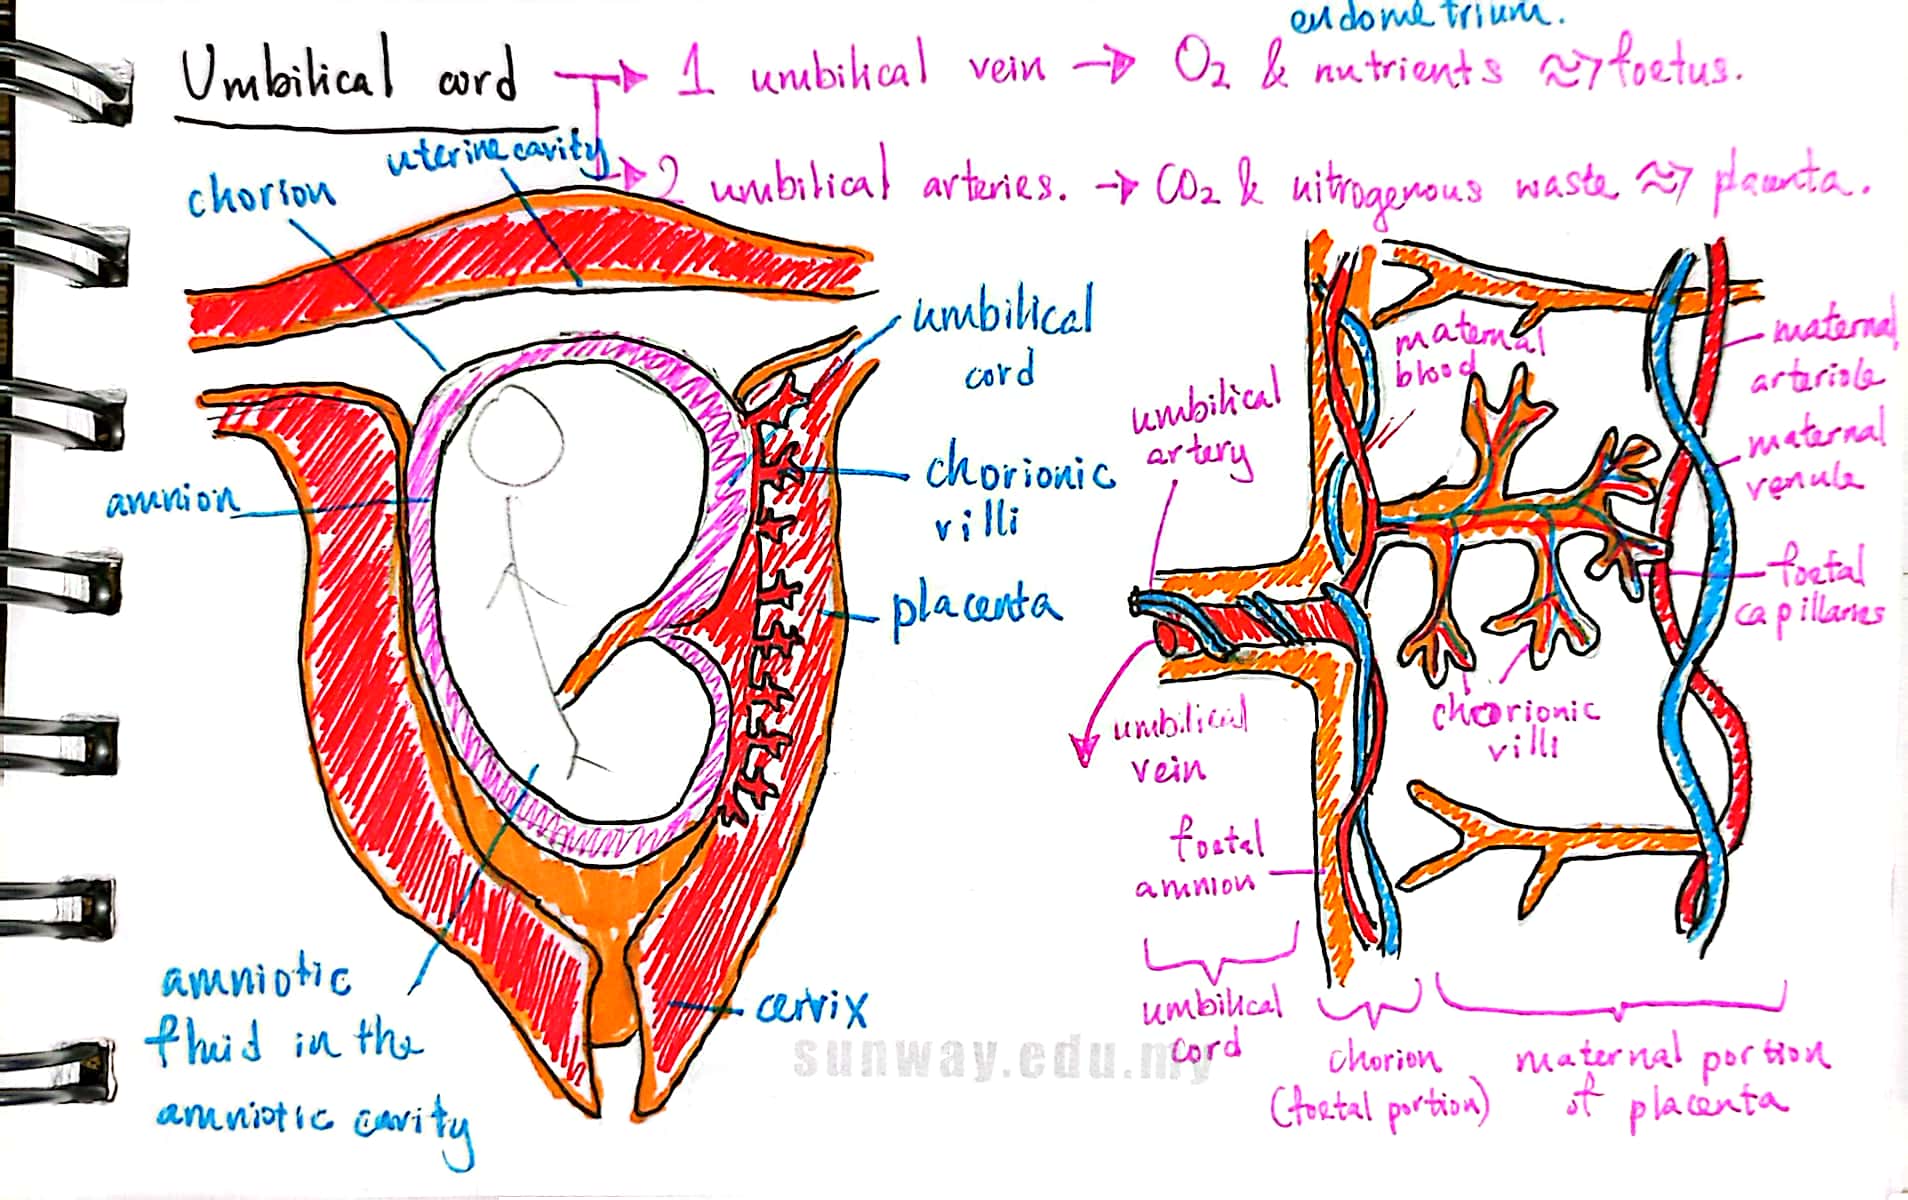 endometrium.
Umbilical cord → 1 umbilical vein → O2 & nutrients ≈> foetus.
2 umbilical arteries. → CO2 & nitrogenous waste ≈> placenta.
uterine cavity
chorion
umbilical
cord
amnion
chorionic
villi
placenta
amniotic
fluid in the
amniotic cavity
cervix
sunway.edu.my
maternal
blood
maternal
arteriole
maternal
venule
umbilical
artery
foetal
capillaries
umbilical
vein
chorionic
villi
foetal
amnion
umbilical
cord
chorion
(foetal portion)
maternal portion
of placenta